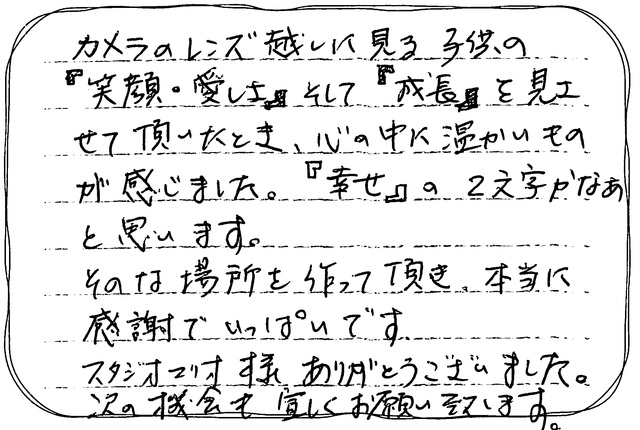 カメラのレンズ越しに見る子供の
『笑顔・愛しさ』そして『成長』を見さ
せて頂いたとき、心の中に温かいもの
が感じました。『幸せ』の2文字かなぁ
と思います。
そのな場所を作って頂き、本当に
感謝でいっぱいです.
スタジオマリオ様ありがとうございました。
次の機会も宜しくお願い致します。